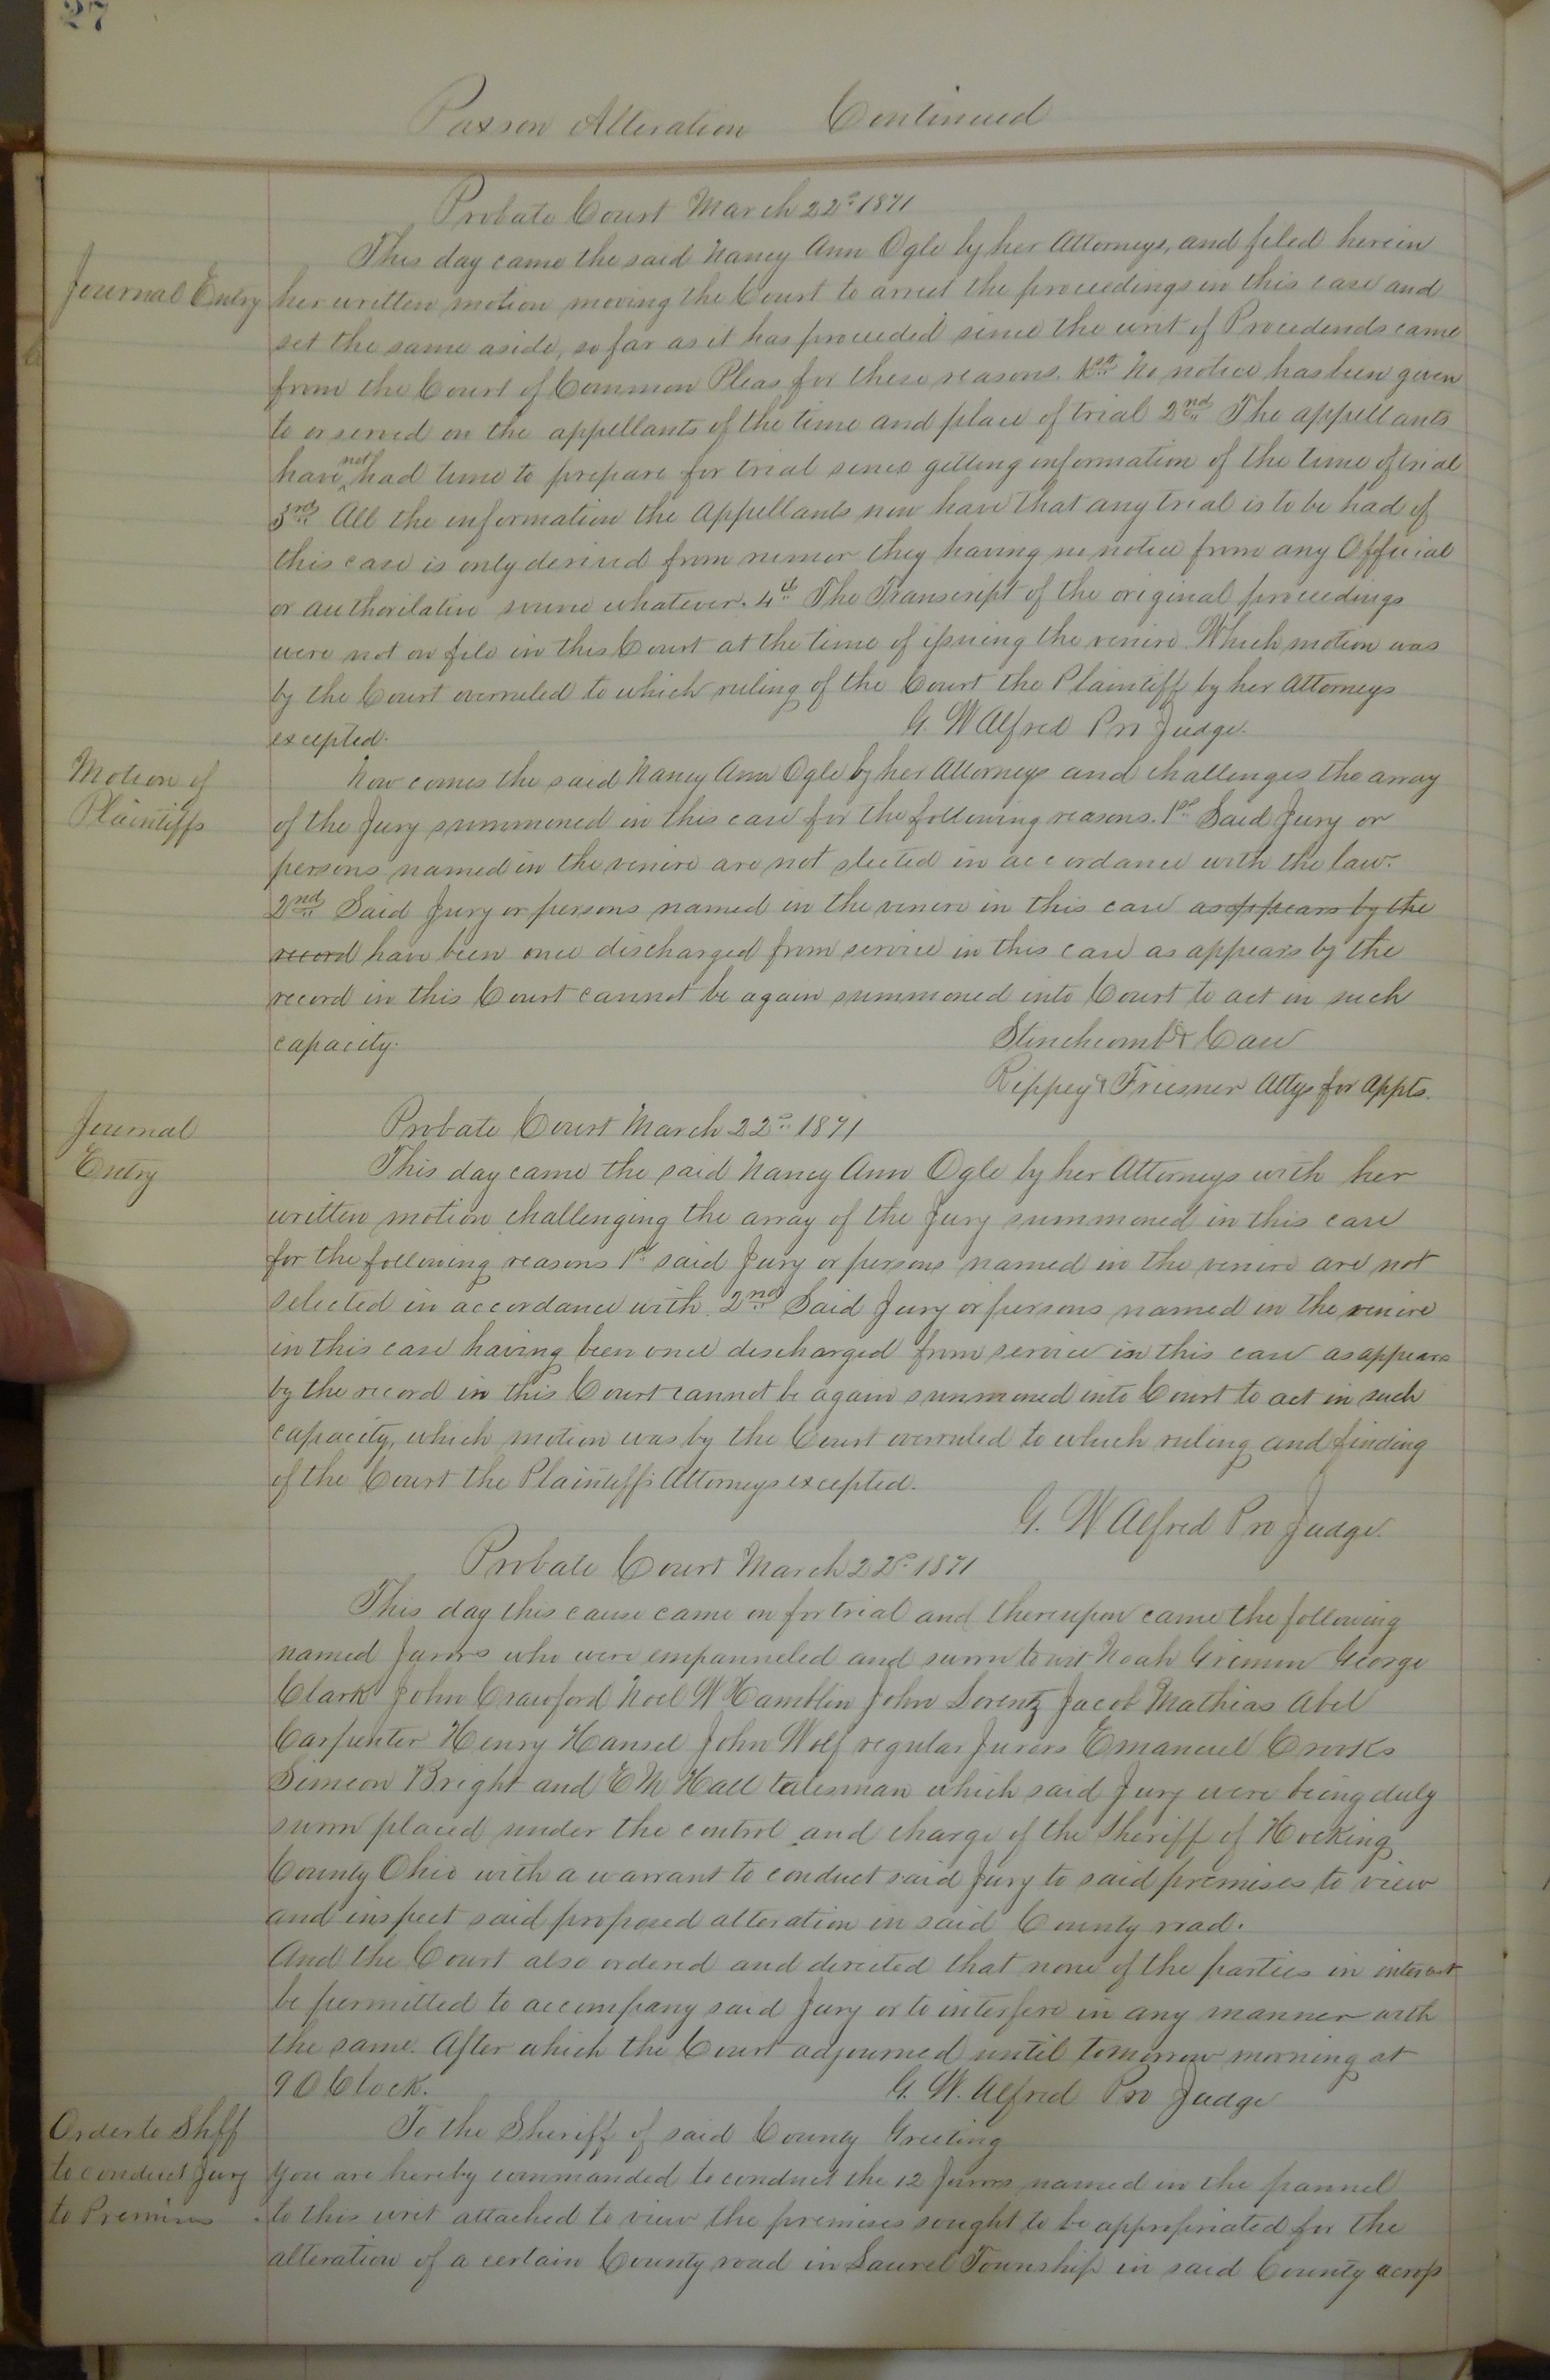 27
Paxson Alteration Continued
Probate Court March 22d 1871
This day came the said Nancy Ann Ogle by her Attorneys, and filed herein
Journal Entry
her written motion moving the Court to arrest the proceedings in this case and
set the same aside, so far as it has proceeded since the writ of Procedendo came
from the Court of Common Pleas for these reasons. 1st No notice has been given
to or served on the appellants of the time and place of trial 2nd The appellants
have not had time to prepare for trial since getting information of the time of trial
3rd All the information the Appellants now have that any trial is to be had of
this case is only derived from rumor they having no notice from any Official
or authoritative source whatever. 4th The Transcript of the original proceedings
were not on file in this Court at the time of issuing the venire. Which motion was
by the Court overruled to which ruling of the Court the Plaintiff by her Attorneys
excepted. G. W Alfred Pro Judge.
Motion of
Plaintiffs
Now comes the said Nancy Ann Ogle by her Attorneys and challenges the array
of the Jury summoned in this case for the following reasons. 1st Said Jury or
persons named in the venire are not slected in accordance with the law.
2nd Said Jury or persons named in the venire in this case as appears by the
record have been once discharged from service in this case as appears by the
record in this Court cannot be again summoned into Court to act in such
capacity. Stinchcomb & Case
Rippey & Friesner Attys for Appts.
Journal
Entry
Probate Court March 22d 1871
This day came the said Nancy Ann Ogle by her Attorneys with her
written motion challenging the array of the Jury summoned in this case
for the following reasons 1st said Jury or persons named in the venire are not
selected in accordance with 2nd Said Jury or persons named in the venire
in this case having been once discharged from service in this case as appears
by the record in this Court cannot be again summoned into Court to act in such
capacity, which motion was by the Court overruled to which ruling and finding
of the Court the Plaintiffs Attorneys excepted.
G. W Alfred Pro Judge.
Probate Court March 22d 1871
This day this cause came on for trial and thereupon came the following
named Jurors who were empanneled and sworn to wit Noah Grimm George
Clark John Crawford Noel W Hamblin John Lorentz Jacob Mathias Abel
Carpenter Henry Hansel John Wolf regular Jurors Emanuel Crooks
Simeon Bright and E M Hall talesman which said Jury were being duly
sworn placed under the control and charge of the Sheriff of Hocking
County Ohio with a warrant to conduct said Jury to said premises to view
and inspect said proposed alteration in said County road.
And the Court also ordered and directed that none of the parties in interest
be permitted to accompany said Jury or to interfere in any manner with
the same. After which the Court adjourned until tomorrow morning at
9 O Clock. G. W. Alfred Pro Judge
Order to Shff
to conduct Jury
to Premises
To the Sheriff of said County Greeting
You are hereby commanded to conduct the 12 Jurors named in the pannel
to this writ attached to view the premises sought to be appropriated for the
alteration of a certain County road in Laurel Township in said County across